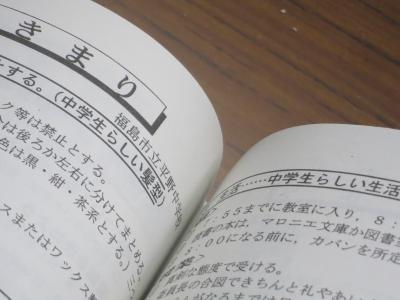 きまり
福島市立平野中学校
とする。(中学生らしい髪型)
ク等は禁止とする。
へは後ろか左右に分けてまとめる。
色は黒・紺・茶系とする。
スまたはワックス
生活……中学生らしい生活
55までに教室に入り,8:
書の本は,マロニエ文庫か図書
:00になる前に,カバンを所定
真剣な態度で受ける。
委員長の合図できちんと礼やあい